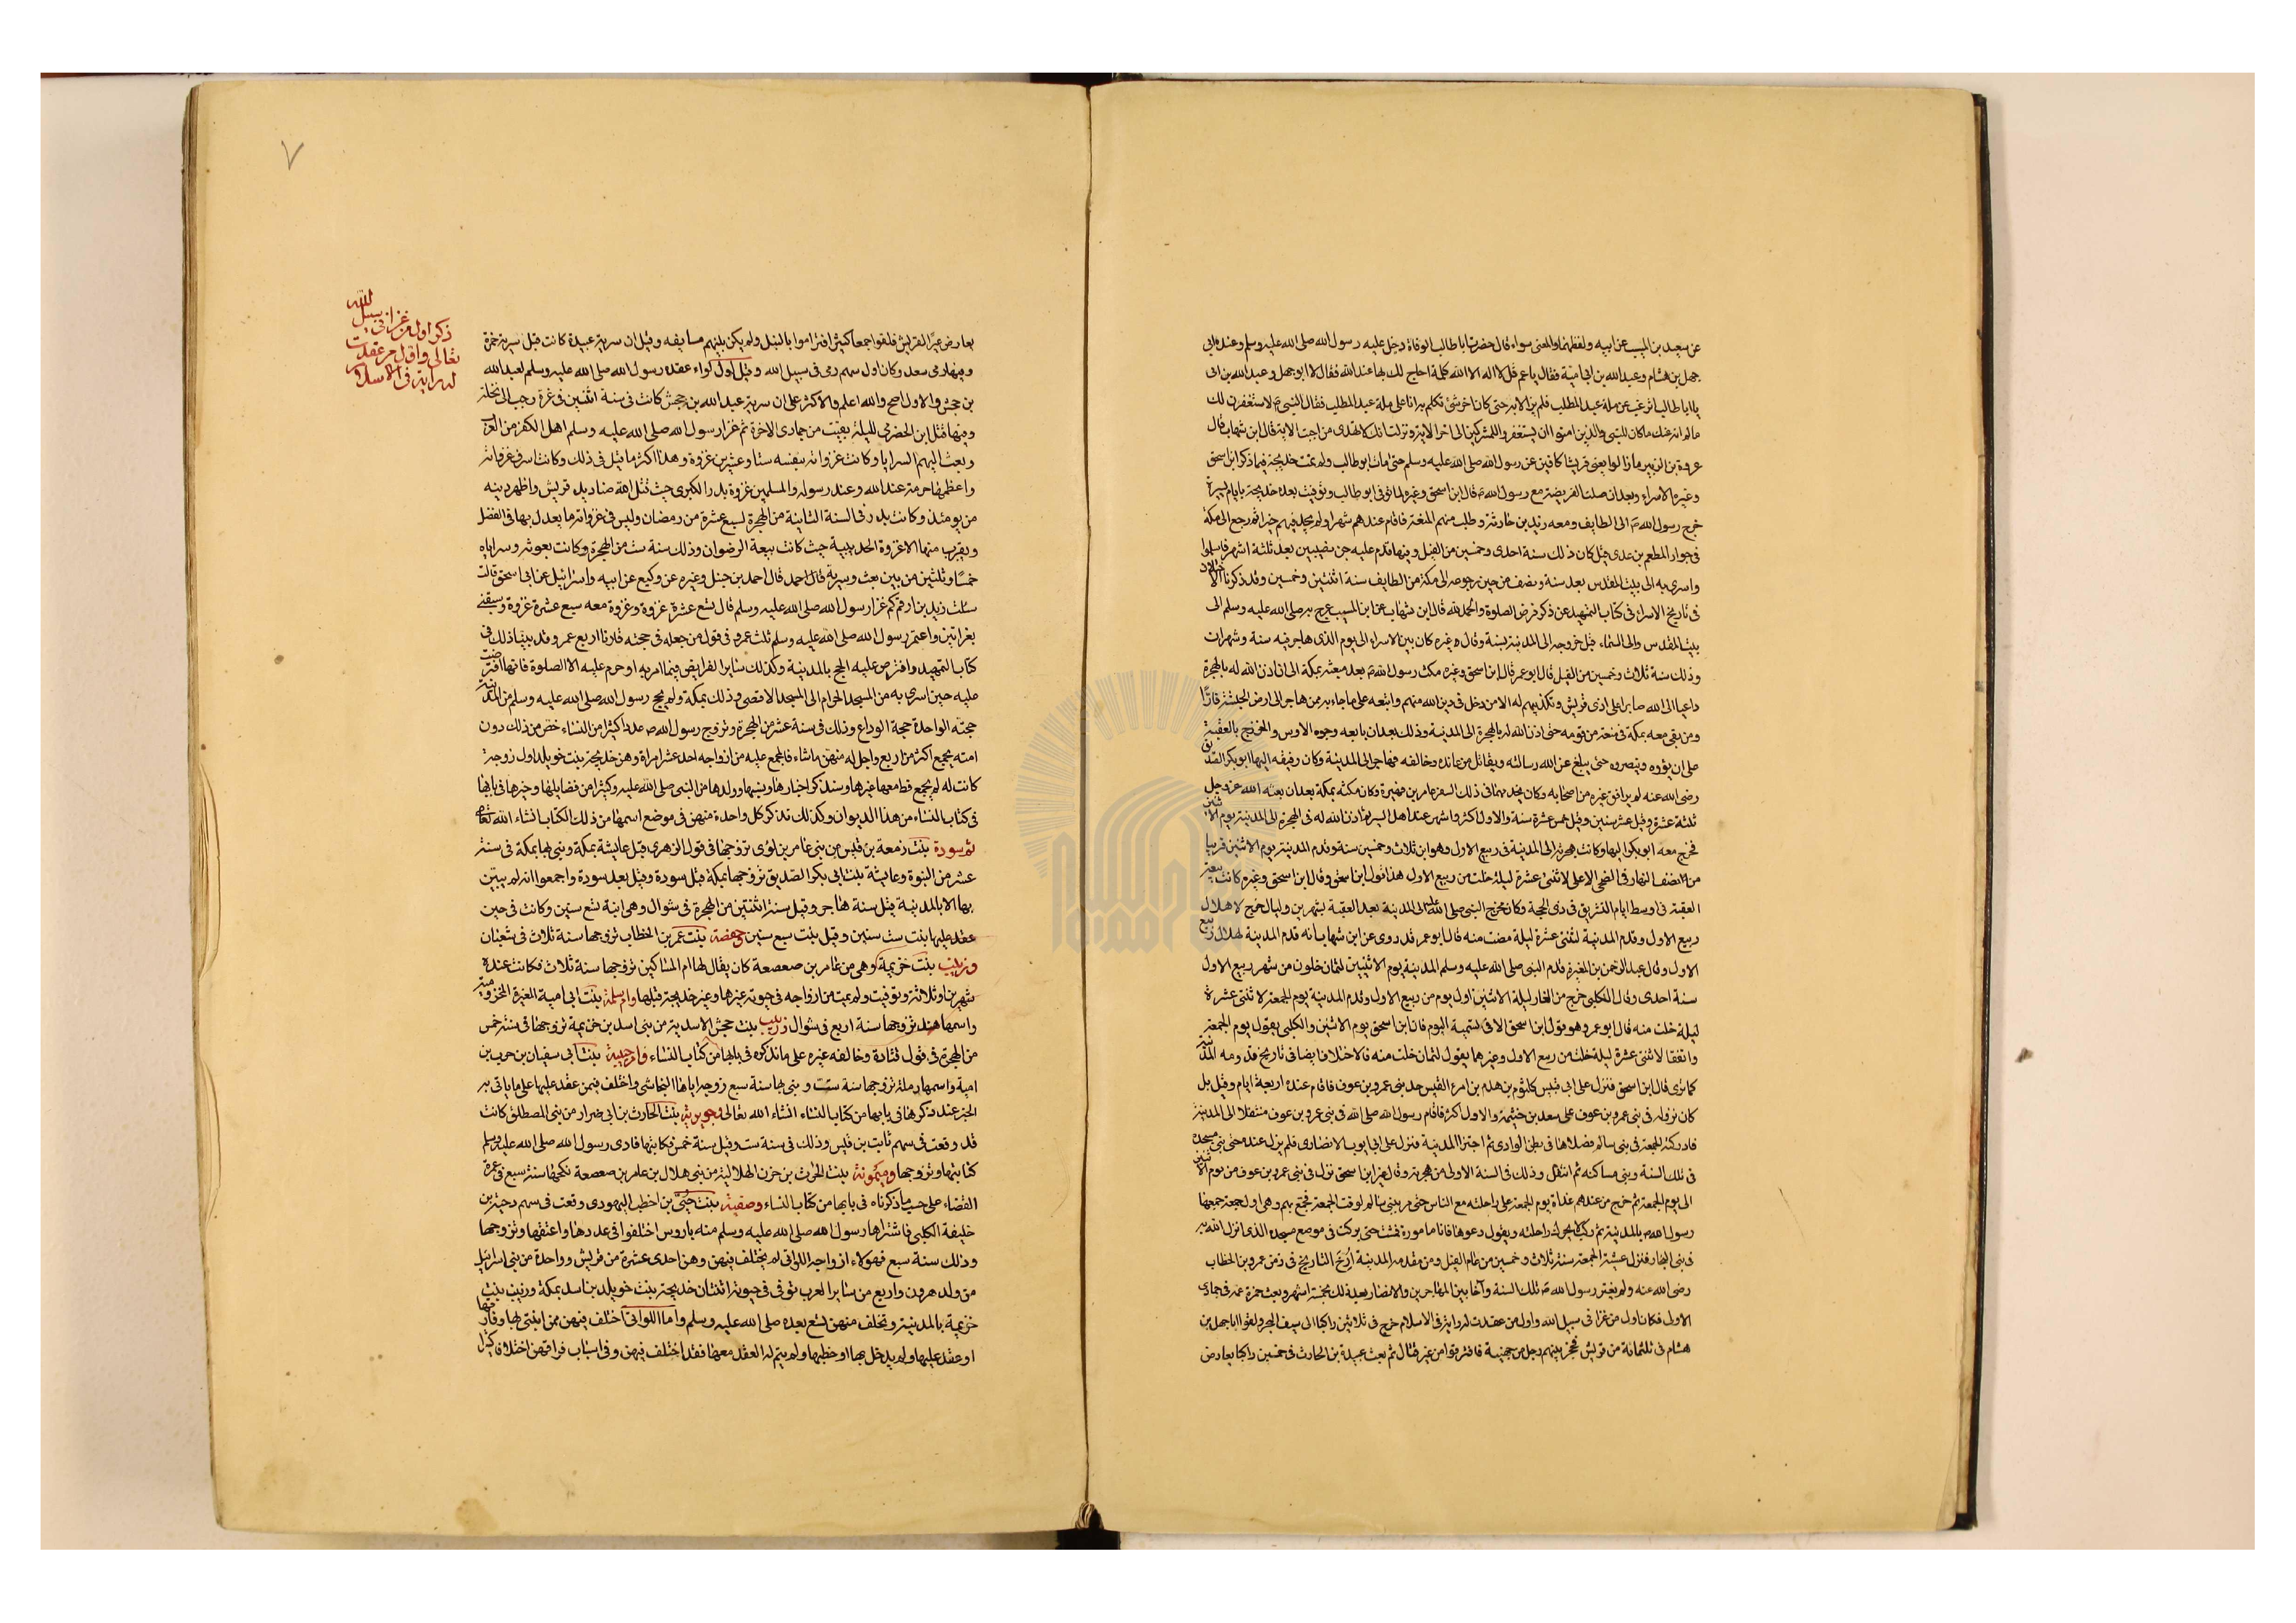 عن سعيد بن المسيب عن ابيه ولفظهما والمعنى سواء قال حضرت ابا طالب الوفاة دخل عليه رسول الله صلى الله عليه وسلم وعنده ابى
جهل بن هشام وعبد الله بن ابى امية فقال ياعم قل لا اله الا الله كلمة احاج لك بها عند الله فقال لا ابو جهل وعبد الله بن ابى
يا ابا طالب اترغب عن ملة عبد المطلب فلم يزالا به حتى كان اخر شئ تكلم به انا على ملة عبد المطلب فقال النبى لاستغفرن لك
ما لم انه عنك ما كان للنبى والذين امنوا ان يستغفروا للمشركين الى اخر الاية ونزلت انك لا تهدى من احببت الاية قال ابن شهاب قال
عروة بن الزبير ما زالوا يعنى قريشا كافين عن رسول الله صلى الله عليه وسلم حتى مات ابو طالب ولم تمت خديجة فيما ذكر ابن اسحق
وغيره الا بعد الاسراء وبعد ان صلت الفريضة مع رسول الله قال ابن اسحق وغيره لما توفى ابو طالب وتوفيت بعده خديجة بايام يسيرة
خرج رسول الله الى الطايف ومعه زيد بن حارثة وطلب منهم المنعة فاقام عندهم شهرا ولم يجد فيهم خيرا ثم رجع الى مكة
فى جوار المطعم بن عدى قيل كان ذلك سنة احدى وخمسين من الفيل وفيها قدم عليه جن نصيبين بعد ثلثة اشهر فاسلموا
واسرى به الى بيت المقدس بعد سنة ونصف من حين رجوعه الى مكة من الطايف سنة اثنتين وخمسين وقد ذكرنا الاختلاف
فى تاريخ الاسراء فى كتاب التمهيد عن ذكر فرض الصلوة والحمد لله قال ابن شهاب عن ابن المسيب عرج به صلى الله عليه وسلم الى
بيت المقدس والى السماء قبل خروجه الى المدينة بسنة وقال غيره كان بين الاسراء الى يوم الذى هاجر فيه سنة وشهران
وذلك سنة ثلاث وخمسين من الفيل قال ابو عمر قال ابن اسحق وغيره مكث رسول الله بعد مبعثه بمكة الى ان اذن الله له بالهجرة
داعيا الى الله صابرا على اذى قريش وتكذيبهم له الا من دخل فى دين الله منهم واتبعه على ما جاء به ممن هاجر الى ارض الحبشة فارًّا
ومن بقى معه بمكة فى منعة من قومه حتى اذن الله له بالهجرة الى المدينة وذلك بعد ان بايعه وجوه الاوس والخزرج بالعقبة
على ان يؤوه وينصروه حتى يبلغ عن الله رسالته ويقاتل من عانده وخالفه فهاجر الى المدينة وكان رفيقه اليها ابو بكر الصديق
رضى الله عنه لم يرافق غيره من اصحابه وكان يخدمهما فى ذلك السفر عامر بن فهيرة وكان مكثه بمكة بعد ان بعثه الله عز وجل
ثلثة عشرة وقيل عشر سنين وقيل خمس عشرة سنة والاول اكثر واشهر عند اهل السير ثم اذن الله له فى الهجرة الى المدينة يوم الاثنين
فخرج معه ابو بكر اليها وكانت هجرته الى المدينة فى ربيع الاول وهو ابن ثلاث وخمسين سنة وقدم المدينة يوم الاثنين قريبا
من نصف النهار فى الضحى الاعلى لاثنتى عشرة ليلة خلت من ربيع الاول هذا قول ابن اسحق وقال ابن اسحق وغيره كانت بيعة
العقبة فى اوسط ايام التشريق فى ذى الحجة وكان مخرج النبى صلى الله عليه الى المدينة بعد العقبة بشهرين وليال خرج لاهلال
ربيع الاول وقدم المدينة لثنتى عشرة ليلة مضت منه قال ابو عمر قد روى عن ابن شهاب انه قدم المدينة لهلال ربيع
الاول وقال عبد الرحمن بن المغيرة قدم النبى صلى الله عليه وسلم المدينة يوم الاثنين لثمان خلون من شهر ربيع الاول
سنة احدى وقال الكلبى خرج من الغار ليلة الاثنين اول يوم من ربيع الاول وقدم المدينة يوم الجمعة لاثنتى عشرة
ليلة خلت منه قال ابو عمر وهو قول ابن اسحق الا فى تسمية اليوم فان ابن اسحق يوم الاثنين والكلبى يقول يوم الجمعة
واتفقا لاثنتى عشرة ليلة خلت من ربيع الاول وغيرهما يقول لثمان خلت منه فالاختلاف ايضا فى تاريخ قدومه المدينة
كما ترى قال ابن اسحق فنزل على ابى قيس كلثوم بن هدم بن امرء القيس احد بنى عمرو بن عوف فاقام عنده اربعة ايام وقيل بل
كان نزوله فى بنى عمرو بن عوف على سعد بن خيثمة والاول اكثر فاقام رسول الله صلى الله فى بنى عمرو بن عوف منتقلا الى المدينة
فادركته الجمعة فى بنى سالم فصلاها فى بطن الوادى ثم اجتز المدينة فنزل على ابى ايوب الانصارى فلم يزل عنده حتى بنى مسجده
فى تلك السنة وبنى مساكنه ثم انتقل وذلك فى السنة الاولى من هجرته وقال غير ابن اسحق نزل فى بنى عمرو بن عوف من يوم الاثنين
الى يوم الجمعة ثم خرج من عندهم غداة يوم الجمعة على راحلته مع الناس حتى مر ببنى سالم لوقت الجمعة فجمع بهم وهى اول جمعة جمعها
رسول الله بالمدينة ثم ركب لا يحرك راحلته ويقول دعوها فانها مامورة فمشت حتى بركت فى موضع مسجده الذى انزل الله به
فى بنى النجار فنزل عشية الجمعة سنة ثلاث وخمسين من عام الفيل ومن مقدمه المدينة اُرّخ التاريخ فى زمن عمرو بن الخطاب
رضى الله عنه ولم يغز رسول الله تلك السنة وآخا بين المهاجرين والانصار بعد ذلك بخمسة اشهر وبعث حمزة عمه فى جمادى
الاول فكان اول من غزا فى سبيل الله واول من عقدت له راية فى الاسلام خرج فى ثلاثين راكبا الى سيف البحر ولقوا ابا جهل بن
هشام فى ثلثمائة من قريش فحجز بينهم رجل من جهينة فافترقوا من غير قتال ثم بعث عبيدة بن الحارث فى خمسين راكبا يعارض
٧
ذكر اول من غزا فى سبيل الله
تعالى واول من عقدت
له راية فى الاسلام
يعارض عيرًا لقريش فلقوا جمعا كثيرا فتراموا بالنبل ولم يكن بينهم مسايفه وقيل ان سرية عبيدة كانت قبل سرية حمزة
وفيها رمى سعد وكان اول سهم رمى فى سبيل الله وقيل اول لواء عقده رسول الله صلى الله عليه وسلم لعبد الله
بن جحش والاول اصح والله اعلم والاكثر على ان سرية عبد الله بن جحش كانت فى سنة اثنتين فى غرة رجب الى نخلة
وفيها قتل ابن الحضرمى لليلة بقيت من جمادى الاخرة ثم غزا رسول الله صلى الله عليه وسلم اهل الكفر من العرب
وبعث اليهم السرايا وكانت غزواته بنفسه ستا وعشرين غزوة وهذا اكثر ما قيل فى ذلك وكانت اشرف غزواته
واعظمها حرمة عند الله وعند رسوله والمسلمين غزوة بدر الكبرى حيث قتل الله صناديد قريش واظهر دينه
من يومئذ وكانت بدر فى السنة الثانية من الهجرة لسبع عشرة من رمضان وليس فى غزواته ما يعدل بها فى الفضل
ويقرب منها الا غزوة الحديبية حيث كانت بيعة الرضوان وذلك سنة ست من الهجرة وكانت بعوثه وسراياه
خمسًا وثلثين من بين بعث وسرية قال احمد قال احمد بن حنبل وغيره عن وكيع عن ابيه واسرائيل عن ابى اسحق قالت
سئلت زيد بن ارقم كم غزا رسول الله صلى الله عليه وسلم قال تسع عشرة غزوة وغزوة معه سبع عشرة غزوة وسبقنى
بغزاتين واعتمر رسول الله صلى الله عليه وسلم ثلث عمر وفى قول من جعله فى حجته قارنا اربع عمر وقد بينا ذلك فى
كتاب التمهيد وافترض عليه الحج بالمدينة وكذلك سائر الفرايض فيما امر به او حرم عليه الا الصلوة فانها افترضت
عليه حين اسرى به من المسجد الحرام الى المسجد الاقصى وذلك بمكة ولم يحج رسول الله صلى الله عليه وسلم من المدينة
حجته الواحدة حجة الوداع وذلك فى سنة عشر من الهجرة وتزوج رسول الله عددا كثيرا من النساء خص من ذلك دون
امته بجمع اكثر من اربع واحل له منهن ما شاء فالمجمع عليه من ازواجه احد عشر امراة وهن خديجة بنت خويلد اول زوجة
كانت له لم يجمع قط معها غيرها وسنذكر اخبارها وبنيها وولدها من النبى صلى الله عليه وكثيرا من فضايلها وخبرها فى بابها
فى كتاب النساء من هذا الديوان وكذلك نذكر كل واحدة منهن فى موضع اسمها من ذلك الكتاب انشاء الله تعالى
ثم سودة بنت زمعة بن قيس من بنى عامر بن لؤى تزوجها فى قول الزهرى قبل عايشة بمكة وبنى بها بمكة فى سنة
عشر من النبوة وعايشة بنت ابى بكر الصديق تزوجها بمكة قبل سودة وقيل بعد سودة واجمعوا انه لم يبتن
بها الا بالمدينة قيل سنة هاجر وقيل سنة اثنتين من الهجرة فى شوال وهى ابنة تسع سنين وكانت فى حين
عقد عليها بنت ست سنين وقيل بنت سبع سنين وحفصة بنت عمر بن الخطاب تزوجها سنة ثلاث فى شعبان
وزينب بنت خزيمة وهى من عامر بن صعصعة كان يقال لها ام المساكين تزوجها سنة ثلاث فكانت عنده
شهرين او ثلاثة وتوفيت ولم يمت من ازواجه فى حيوته غيرها وغير خديجة قبلها وام سلمة بنت ابى امية المغيرة المخزومية
واسمها هند تزوجها سنة اربع فى شوال زينب بنت جحش الاسدية من بنى اسد بن خزيمة تزوجها فى سنة خمس
من الهجرة فى قول قتادة وخالفه غيره على ما نذكره فى بابها من كتاب النساء وام حبيبة بنت ابى سفيان بن حرب بن
امية واسمها رملة تزوجها سنة ست وبنى بها سنة سبع زوجه اياها النجاشى واختلف فيمن عقد عليها على ما ياتى به
الخبر عند ذكرها فى بابها من كتاب النساء انشاء الله تعالى وجويرية بنت الحارث بن ابى ضرار من بنى المصطلق كانت
قد وقعت فى سهم ثابت بن قيس وذلك فى سنة ست وقيل سنة خمس فكاتبها فادى رسول الله صلى الله عليه وسلم
كتابتها وتزوجها وميمونة بنت الحرث بن حزن الهلالية من بنى هلال بن عامر بن صعصعة نكحها سنة سبع فى عمرة
القضاء على حسب ما ذكرناه فى بابها من كتاب النساء وصفية بنت حُيَىّ بن اخطب اليهودى وقعت فى سهم دحية بن
خليفة الكلبى فاشتراها رسول الله صلى الله عليه وسلم منه باروس اختلفوا فى عددها واعتقها وتزوجها
وذلك سنة سبع فهؤلاء ازواجه اللواتى لم يختلف فيهن وهن احدى عشرة من قريش وواحدة من بنى اسرائيل
من ولد هرون واربع من سائر العرب توفى فى حيوته اثنتان خديجة بنت خويلد بن اسد بمكة وزينب بنت
خزيمة بالمدينة وتخلف منهن تسع بعده صلى الله عليه وسلم واما اللواتى اختلف فيهن ممن ابتنى بها وفارقها
او عقد عليها ولم يدخل بها او خطبها ولم يتم له العقد معها فقد اختلف فيهن وفى اسباب فراقهن اختلافا كثيرا